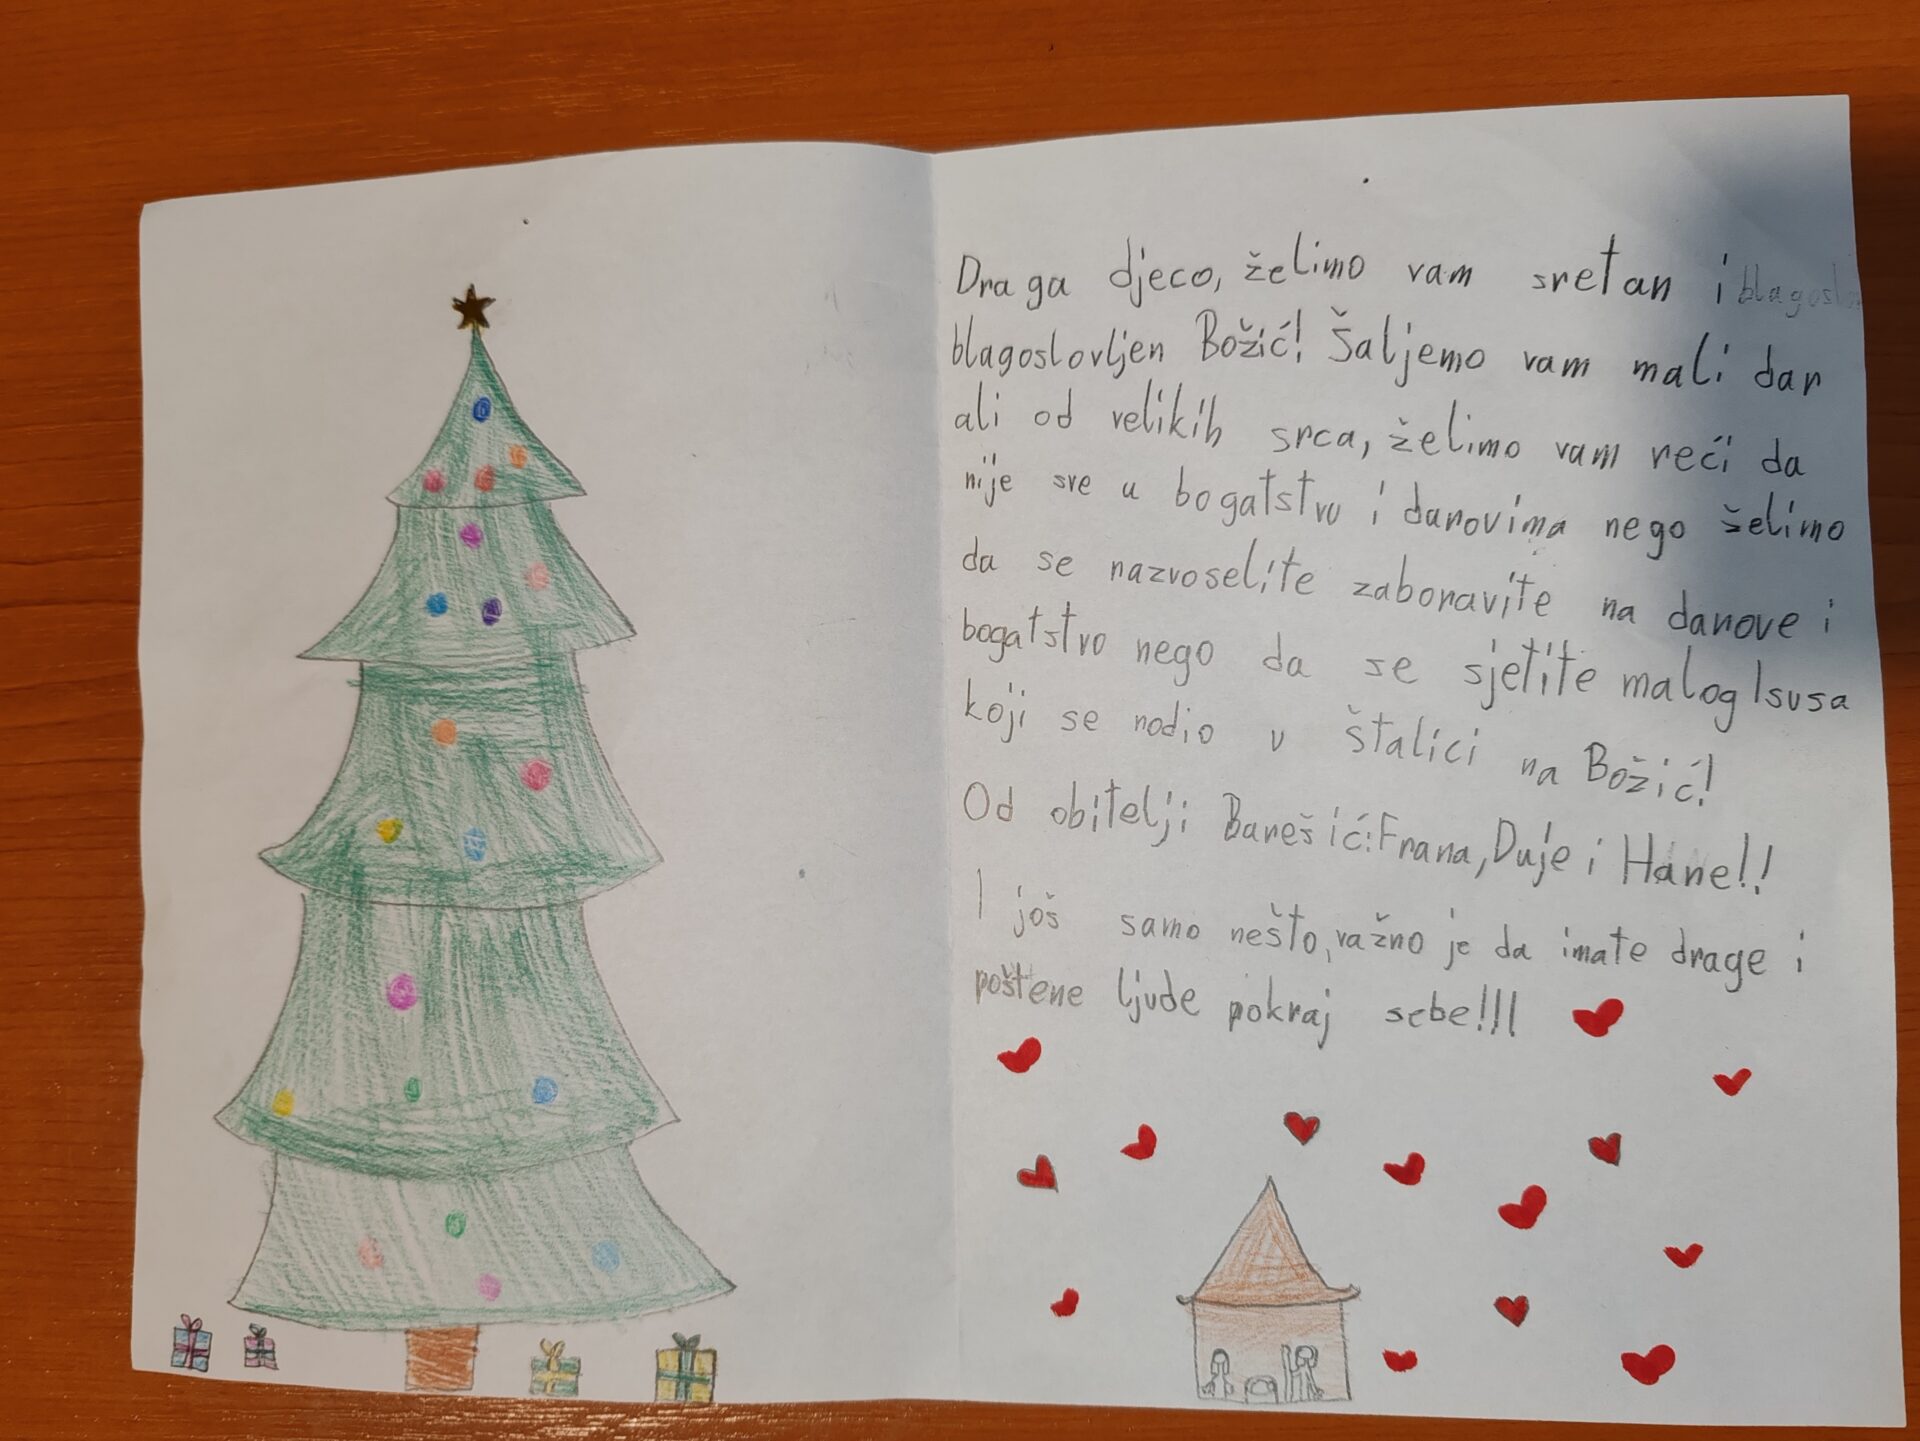 Draga djeco, želimo vam sretan i blagoslo
blagoslovljen Božić! Šaljemo vam mali dar
ali od velikih srca, želimo vam reći da
nije sve u bogatstvu i darovima nego želimo
da se razvoselite zaboravite na darove i
bogatstvo nego da se sjetite malog Isusa
koji se rodio u štalici na Božić!
Od obitelji Barešić: Frana, Duje i Hane!!
I još samo nešto, važno je da imate drage i
poštene ljude pokraj sebe!!!